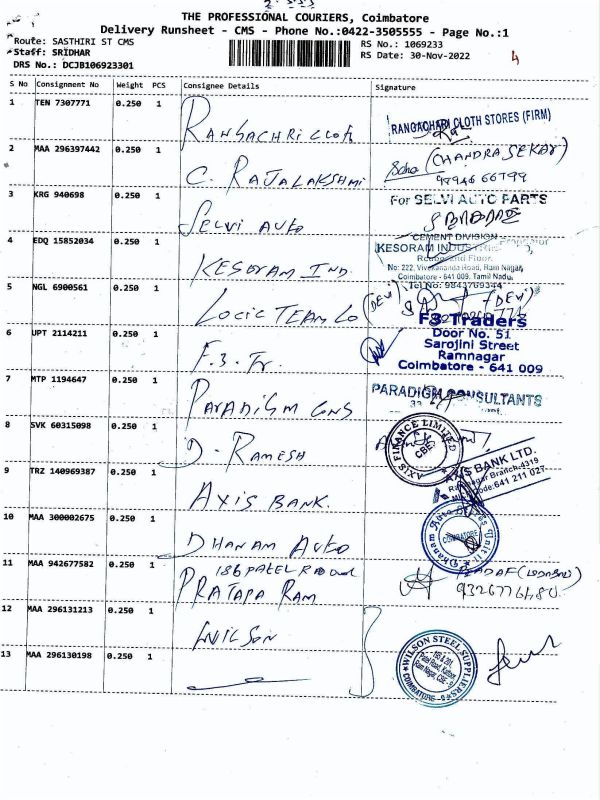 THE PROFESSIONAL COURIERS, Coimbatore
Delivery Runsheet - CMS - Phone No.:0422-3505555 - Page No.:1
Route: SASTHIRI ST CMS
Staff: SRIDHAR
DRS No.: DCJB106923301
RS No.: 1069233
RS Date: 30-Nov-2022
4
S No Consignment No Weight PCS Consignee Details Signature
1 TEN 7307771 0.250 1 RANGACHRI CLOTH
RANGACHARI CLOTH STORES (FIRM)
2 MAA 296397442 0.250 1 C. RAJALAKSHMI
(CHANDRASEKAR)
3 KRG 940698 0.250 1 SELVI AUTO
For SELVI AUTO PARTS
4 EDQ 15852034 0.250 1 KESORAM IND.
CEMENT DIVISION
KESORAM INDUSTRIES
No: 222, Vivekananda Road, Ram Nagar,
Coimbatore - 641 009. Tamil Nadu.
Tel No: 9843769344
5 NGL 6900561 0.250 1 LOGIC TEAM CO
(DEVI)
(DEVI)
6 UPT 2114211 0.250 1 F.3. Tr.
F3 Traders
Door No. 51
Sarojini Street
Ramnagar
Coimbatore - 641 009
7 MTP 1194647 0.250 1 PARADIGM CONS
PARADIGM CONSULTANTS
8 SVK 60315098 0.250 1 D. RAMESH
AXIS FINANCE LIMITED
CBE
9 TRZ 140969387 0.250 1 AXIS BANK.
AXIS BANK LTD.
Ramnagar Branch-4319
Code:641 211 027
10 MAA 300002675 0.250 1 DHANAM AUTO
Dhanam Auto
COIMBATORE
11 MAA 942677582 0.250 1 186 PATEL ROAD
PRATAPA RAM
9326776480
12 MAA 296131213 0.250 1 WILSON
WILSON STEEL SUPPLIERS
COIMBATORE - 9
13 MAA 296130198 0.250 1